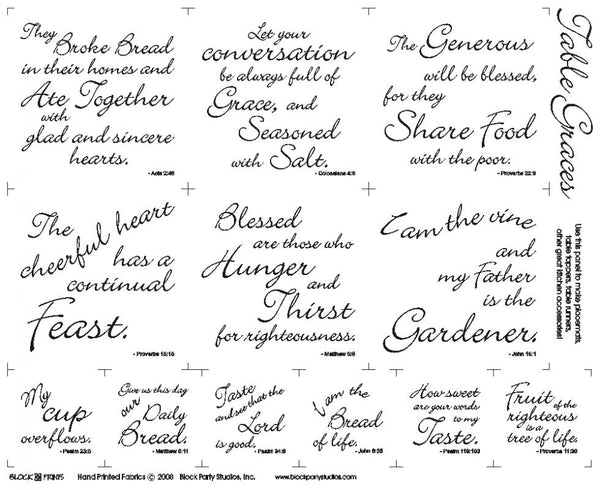 They
Broke Bread
in their homes and
Ate Together
with
glad and sincere
hearts.
- Acts 2:46
Let your
conversation
be always full of
Grace, and
Seasoned
with Salt.
- Colossians 4:6
The Generous
will be blessed,
for they
Share Food
with the poor.
- Proverbs 22:9
Table Graces
The
cheerful heart
has a
continual
Feast.
- Proverbs 15:15
Blessed
are those who
Hunger
and
Thirst
for righteousness.
- Matthew 5:6
I am the vine
and
my Father
is the
Gardener.
- John 15:1
Use this panel to make placemats,
table toppers, table runners,
other great kitchen accessories!
My
cup
overflows.
- Psalm 23:5
Give us this day
our
Daily
Bread.
- Matthew 6:11
Taste
and see that the
Lord
is good.
- Psalm 34:8
I am the
Bread
of life.
- John 6:35
How sweet
are your words
to my
Taste.
- Psalm 119:103
Fruit of the
righteous
is a
tree of life.
- Proverbs 11:30
BLOCK PRINTS Hand Printed Fabrics © 2008 Block Party Studios, Inc. www.blockpartystudios.com